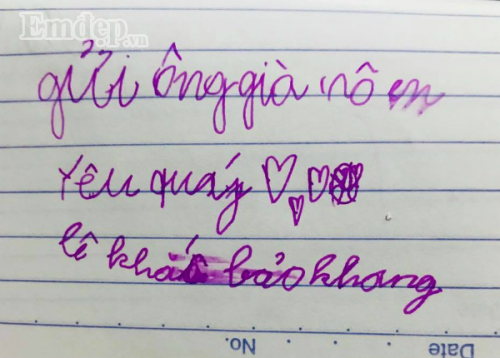 Emdep.vn
gửi ông già nô en
Yêu quáy
lê khắc bảo khang
Date
No.